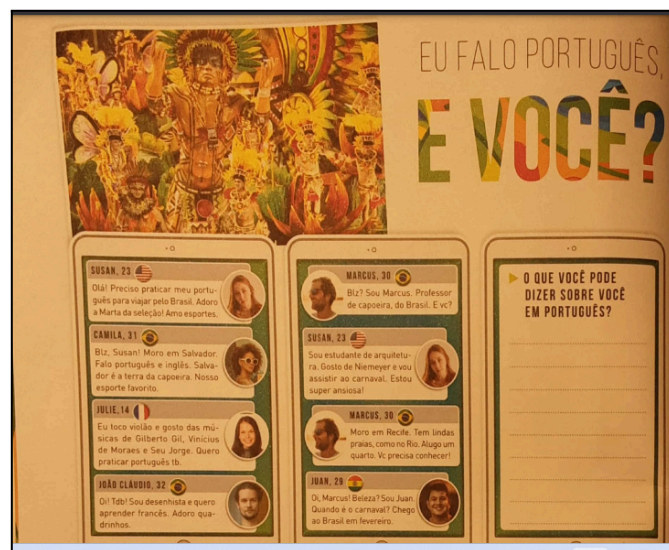 EU FALO PORTUGUÊS,
E VOCÊ?
SUSAN, 23
Olá! Preciso praticar meu portu-
guês para viajar pelo Brasil. Adoro
a Marta da seleção! Amo esportes.
CAMILA, 31
Blz, Susan! Moro em Salvador.
Falo português e inglês. Salva-
dor é a terra da capoeira. Nosso
esporte favorito.
JULIE, 14
Eu toco violão e gosto das mú-
sicas de Gilberto Gil, Vinícius
de Moraes e Seu Jorge. Quero
praticar português tb.
JOÃO CLÁUDIO, 32
Oi! Tdb! Sou desenhista e quero
aprender francês. Adoro qua-
drinhos.
MARCUS, 30
Blz? Sou Marcus. Professor
de capoeira, do Brasil. E vc?
SUSAN, 23
Sou estudante de arquitetu-
ra. Gosto de Niemeyer e vou
assistir ao carnaval. Estou
super ansiosa!
MARCUS, 30
Moro em Recife. Tem lindas
praias, como no Rio. Alugo um
quarto. Vc precisa conhecer!
JUAN, 29
Oi, Marcus! Beleza? Sou Juan.
Quando é o carnaval? Chego
ao Brasil em fevereiro.
O QUE VOCÊ PODE
DIZER SOBRE VOCÊ
EM PORTUGUÊS?